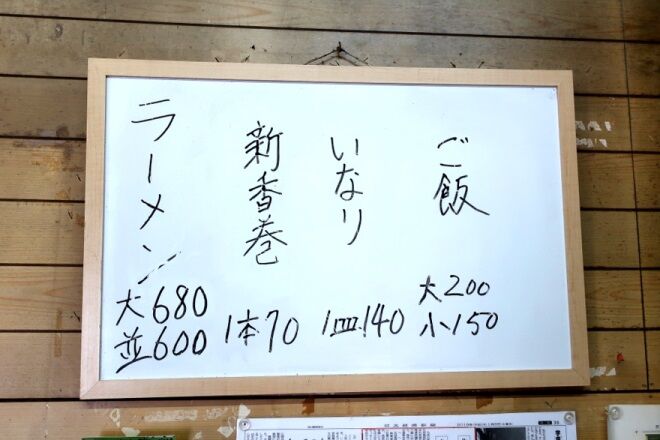 ご飯
大200
小150
いなり
1皿140
新香巻
1本70
ラーメン
大680
並600